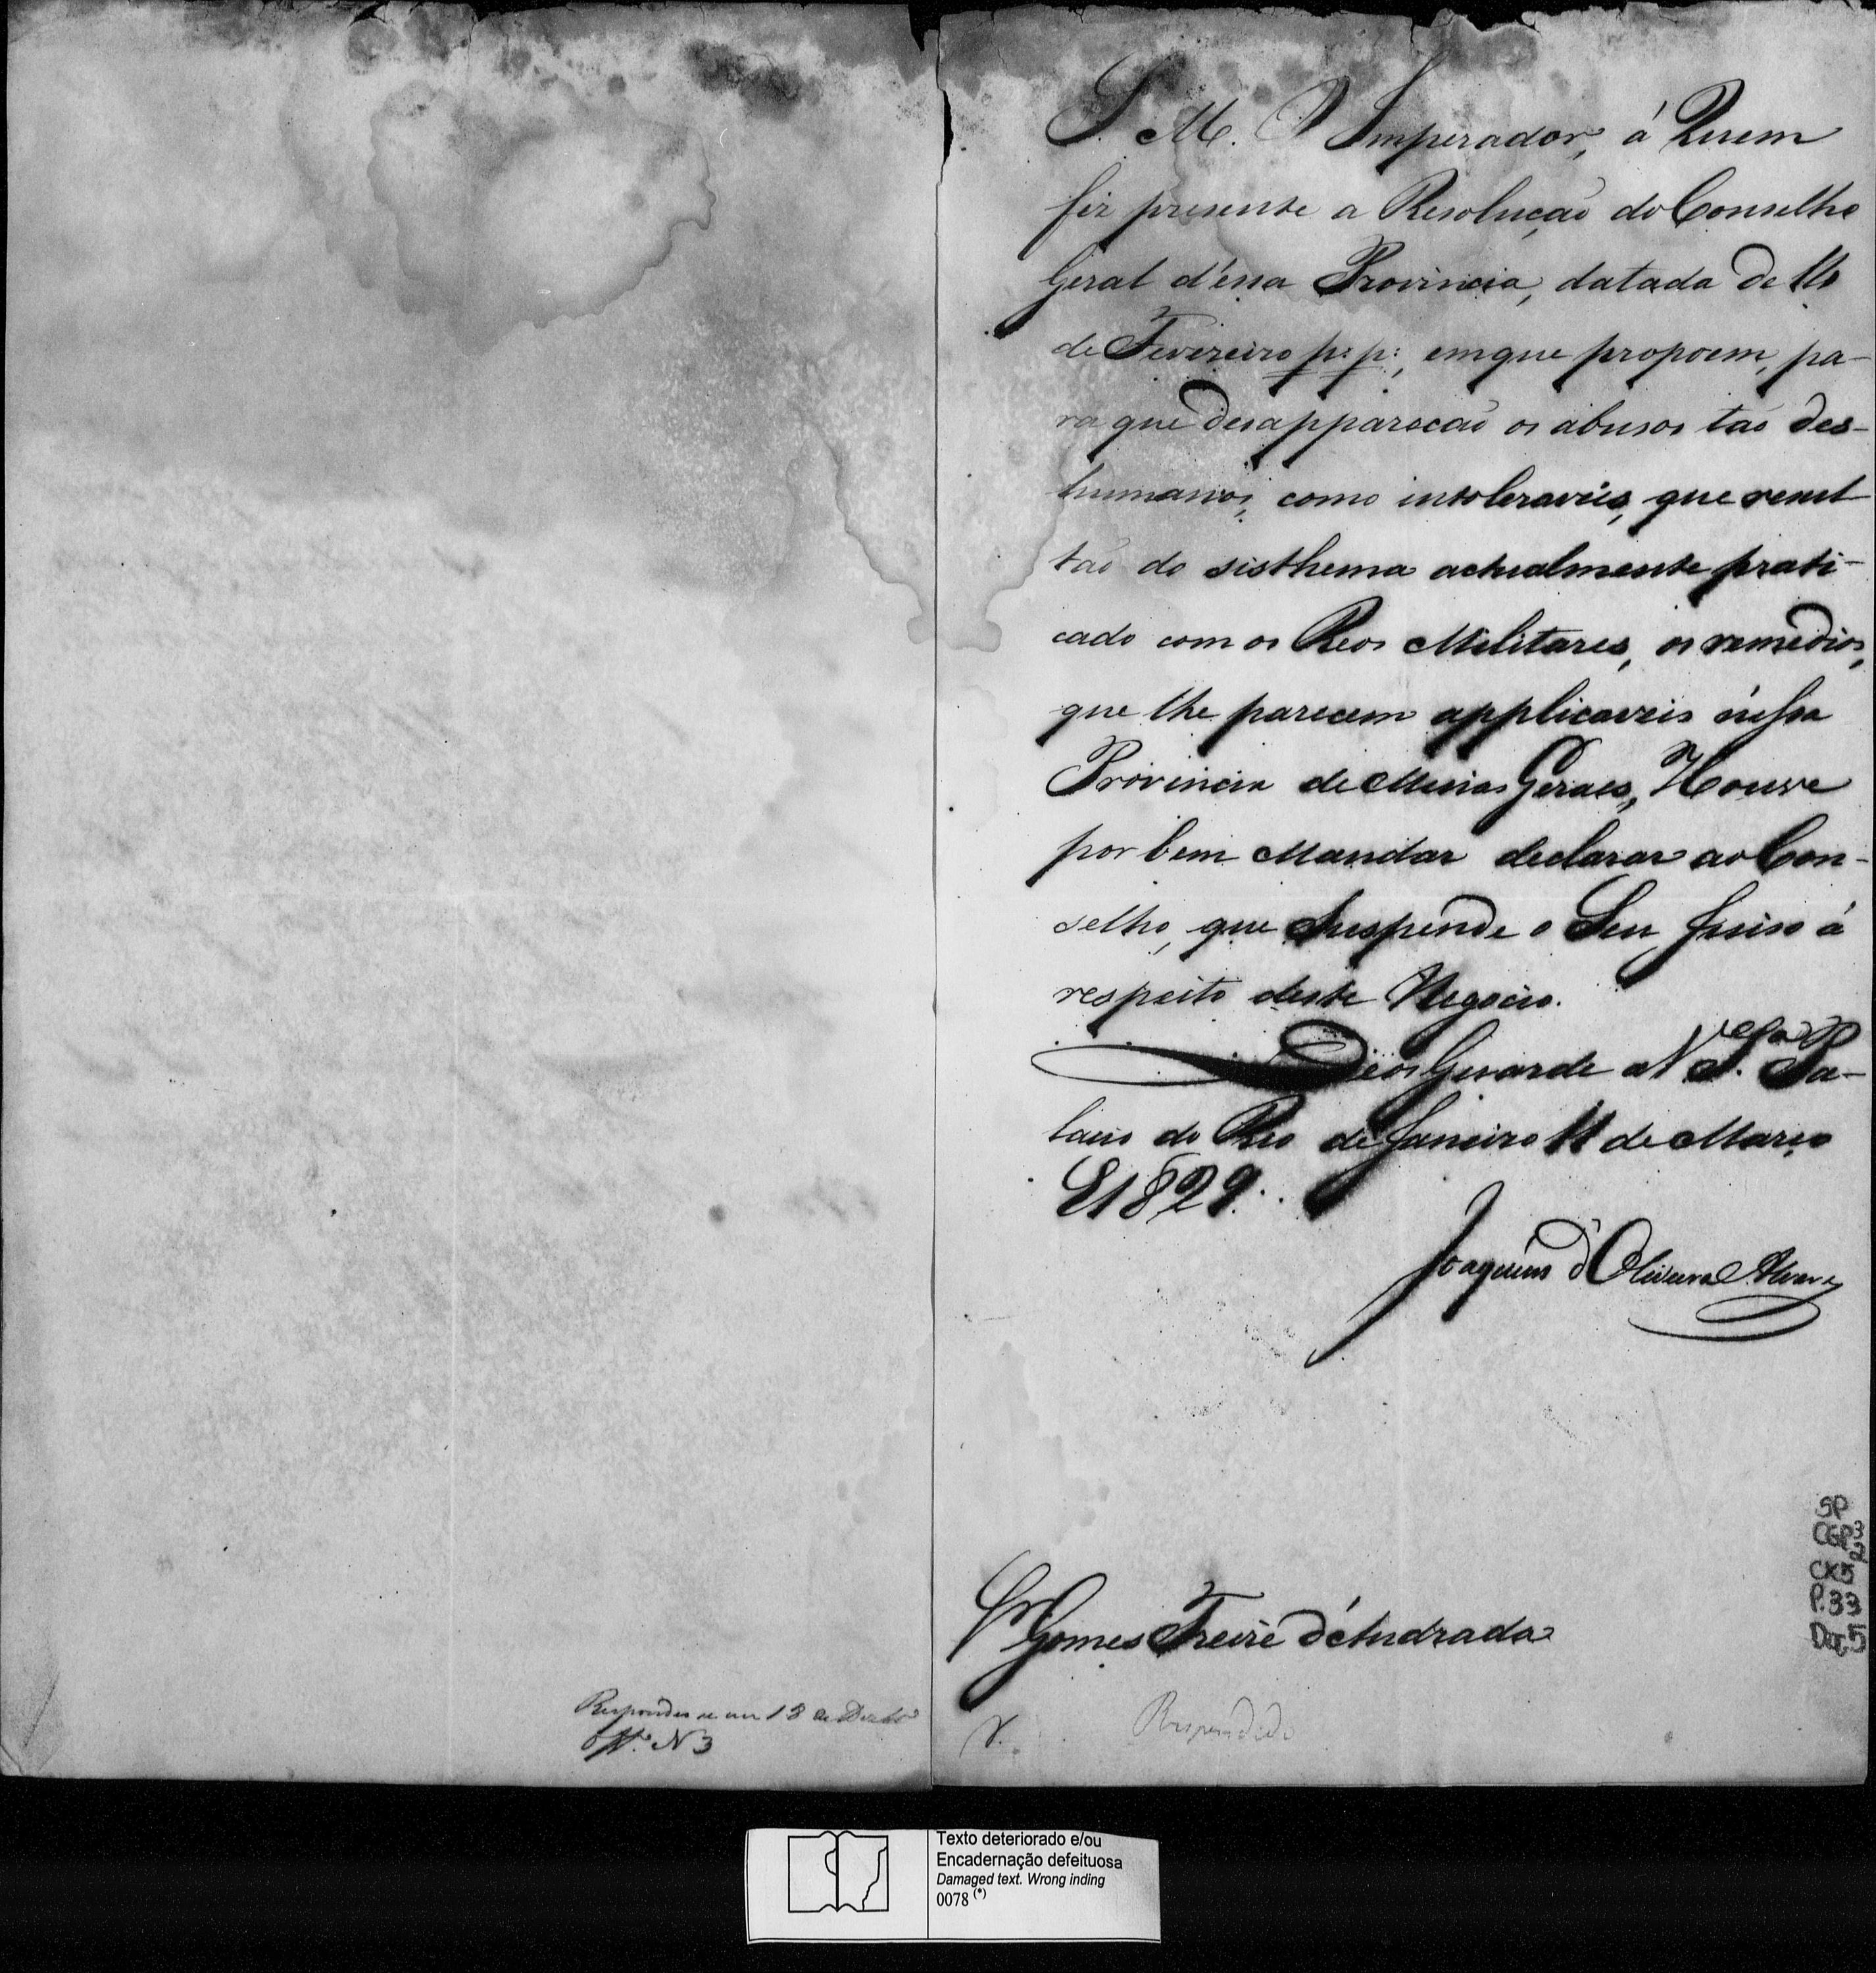 Respondeu se em 18 de Dezbro
Off.º N 3
S. M. O Imperador, á Quem
fiz presente a Resolução do Conselho
Geral d'essa Provincia, datada de 16
de Fevereiro p: p:, em que propoem, pa-
ra que desappareção os abusos tão des-
humanos, como intoleraveis, que resul
tão do sisthema actualmente prati-
cado com os Reos Militares, os remedios,
que lhe parecem applicaveis n'essa
Provincia de Minas Geraes, Houve
por bem Mandar declarar ao Con-
selho, que Suspende o Seu Juiso á
respeito deste Negocio.
Deos Guarde a V. S. Pa-
lacio do Rio de Janeiro 11 de Março
1829.
Joaquim d'Oliveira Alvares
Snr Gomes Freire d'Andrada
Respondido
SP
CGP3
2
CX5
P.33
Doc5
Texto deteriorado e/ou
Encadernação defeituosa
Damaged text. Wrong inding
0078 (*)